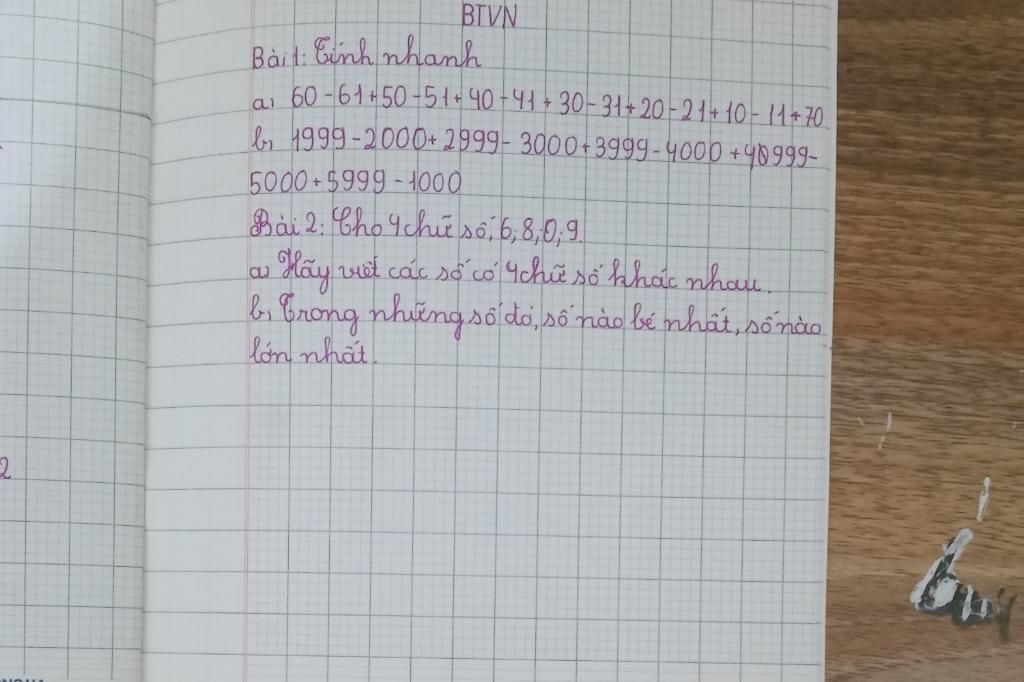 BTVN
Bài 1: Tính nhanh
a, 60 - 61 + 50 - 51 + 40 - 41 + 30 - 31 + 20 - 21 + 10 - 11 + 70
b, 1999 - 2000 + 2999 - 3000 + 3999 - 4000 + 40999 -
5000 + 5999 - 1000
Bài 2: Cho 4 chữ số, 6; 8; 0; 9.
a, Hãy viết các số có 4 chữ số khác nhau.
b, Trong những số đó, số nào bé nhất, số nào
lớn nhất.
2